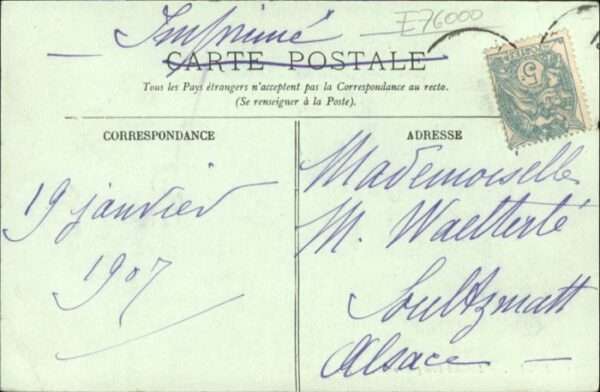 Imprimé
E76000
CARTE POSTALE
Tous les Pays étrangers n'acceptent pas la Correspondance au recto.
(Se renseigner à la Poste).
CORRESPONDANCE
19 janvier
1907
ADRESSE
Mademoiselle
M. Waetterlé
Soultzmatt
Alsace
5